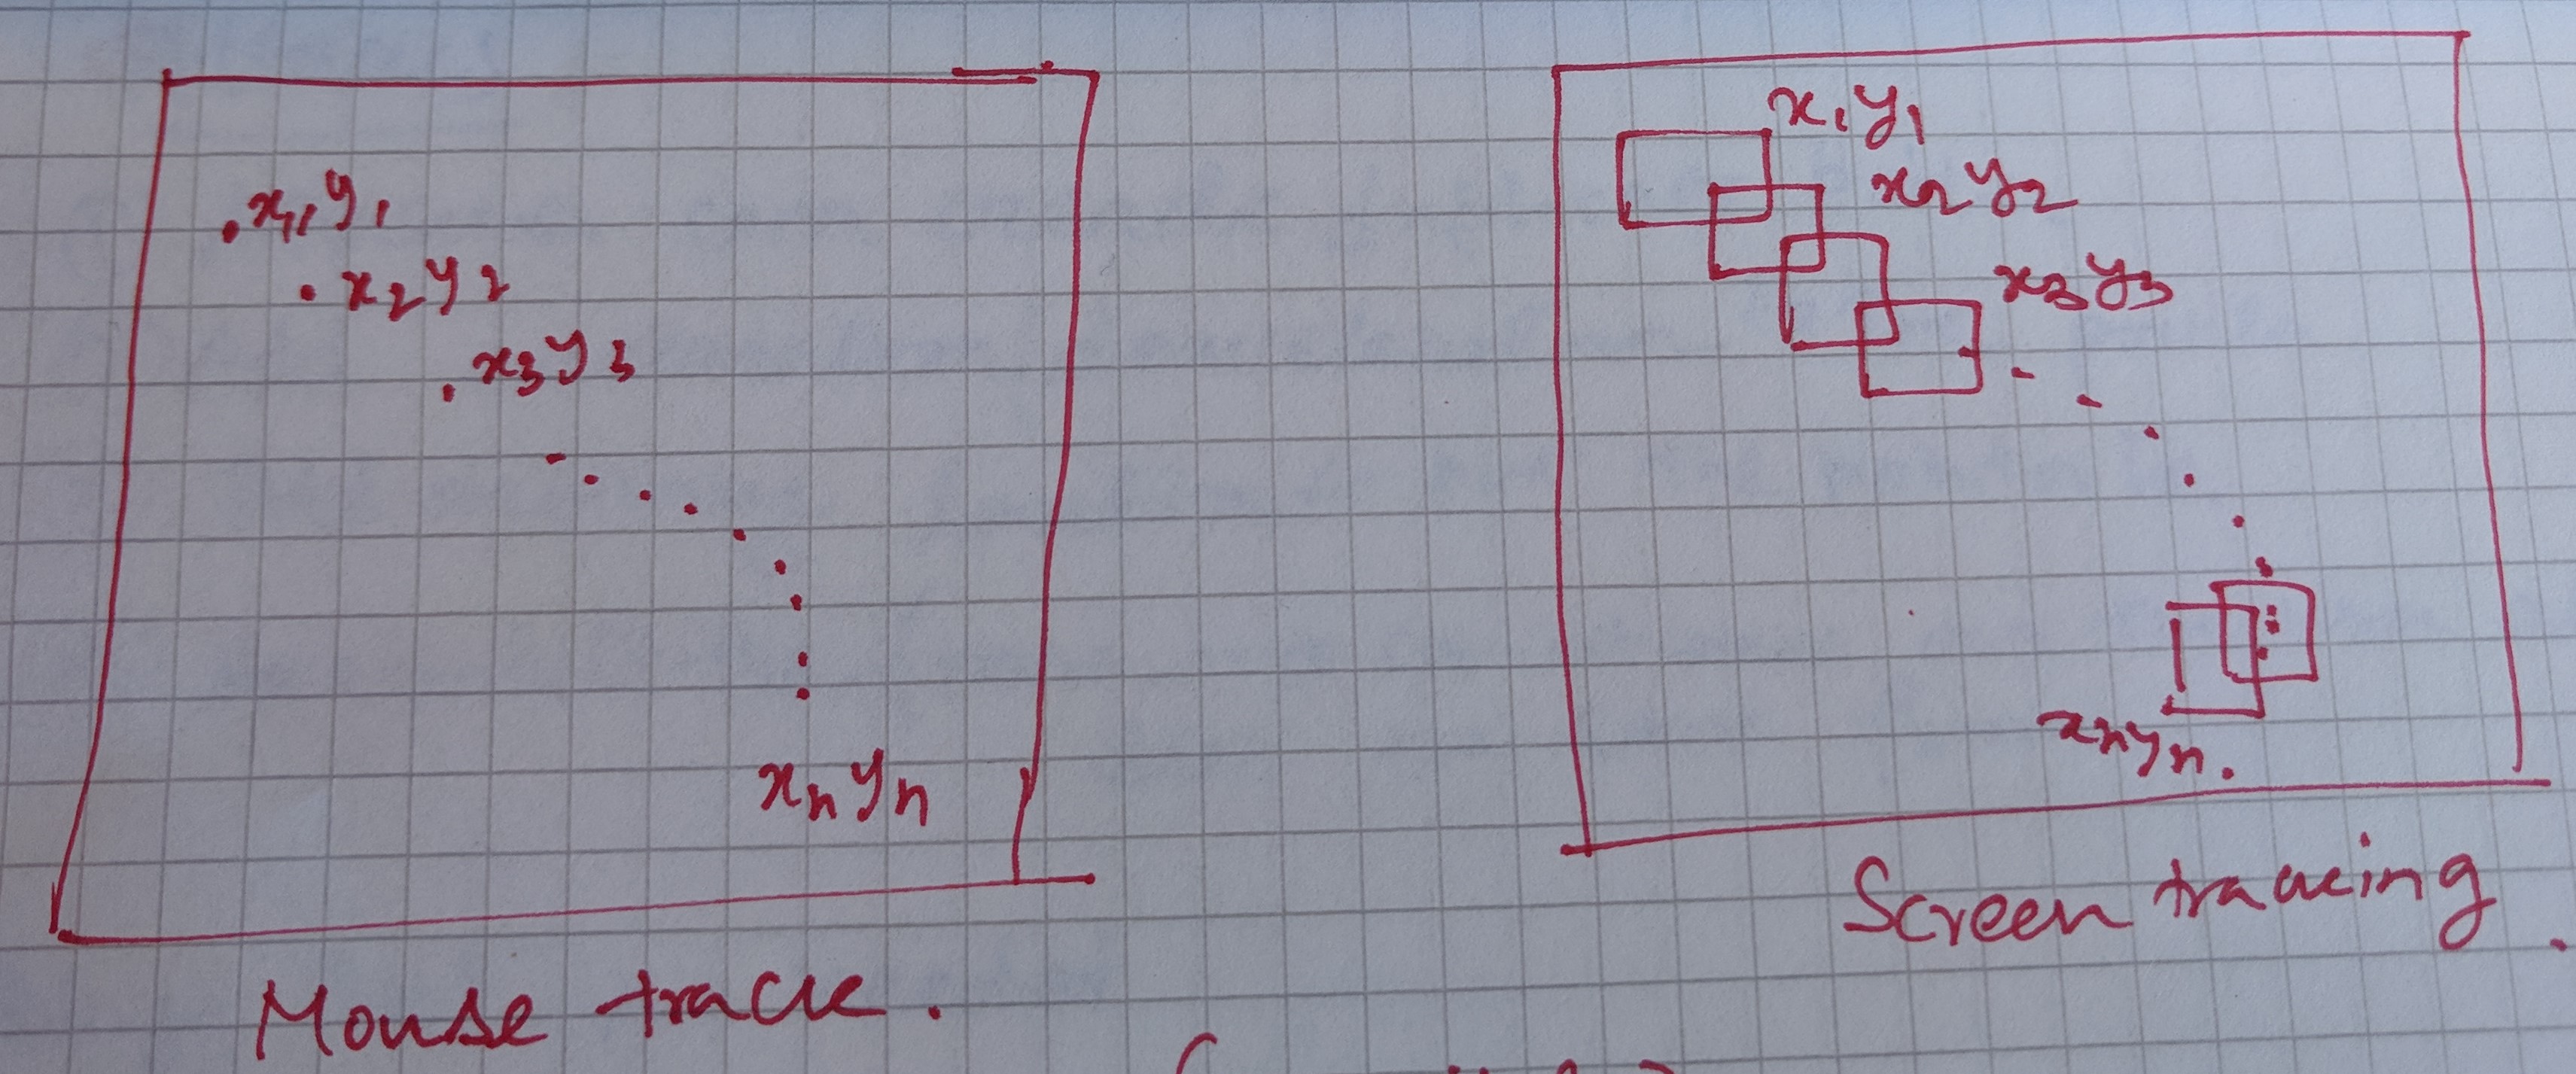 x1, y1
x2 y2
x3 y3
xn yn
Mouse track.
x1 y1
x2 y2
x3 y3
xn yn.
Screen tracing.